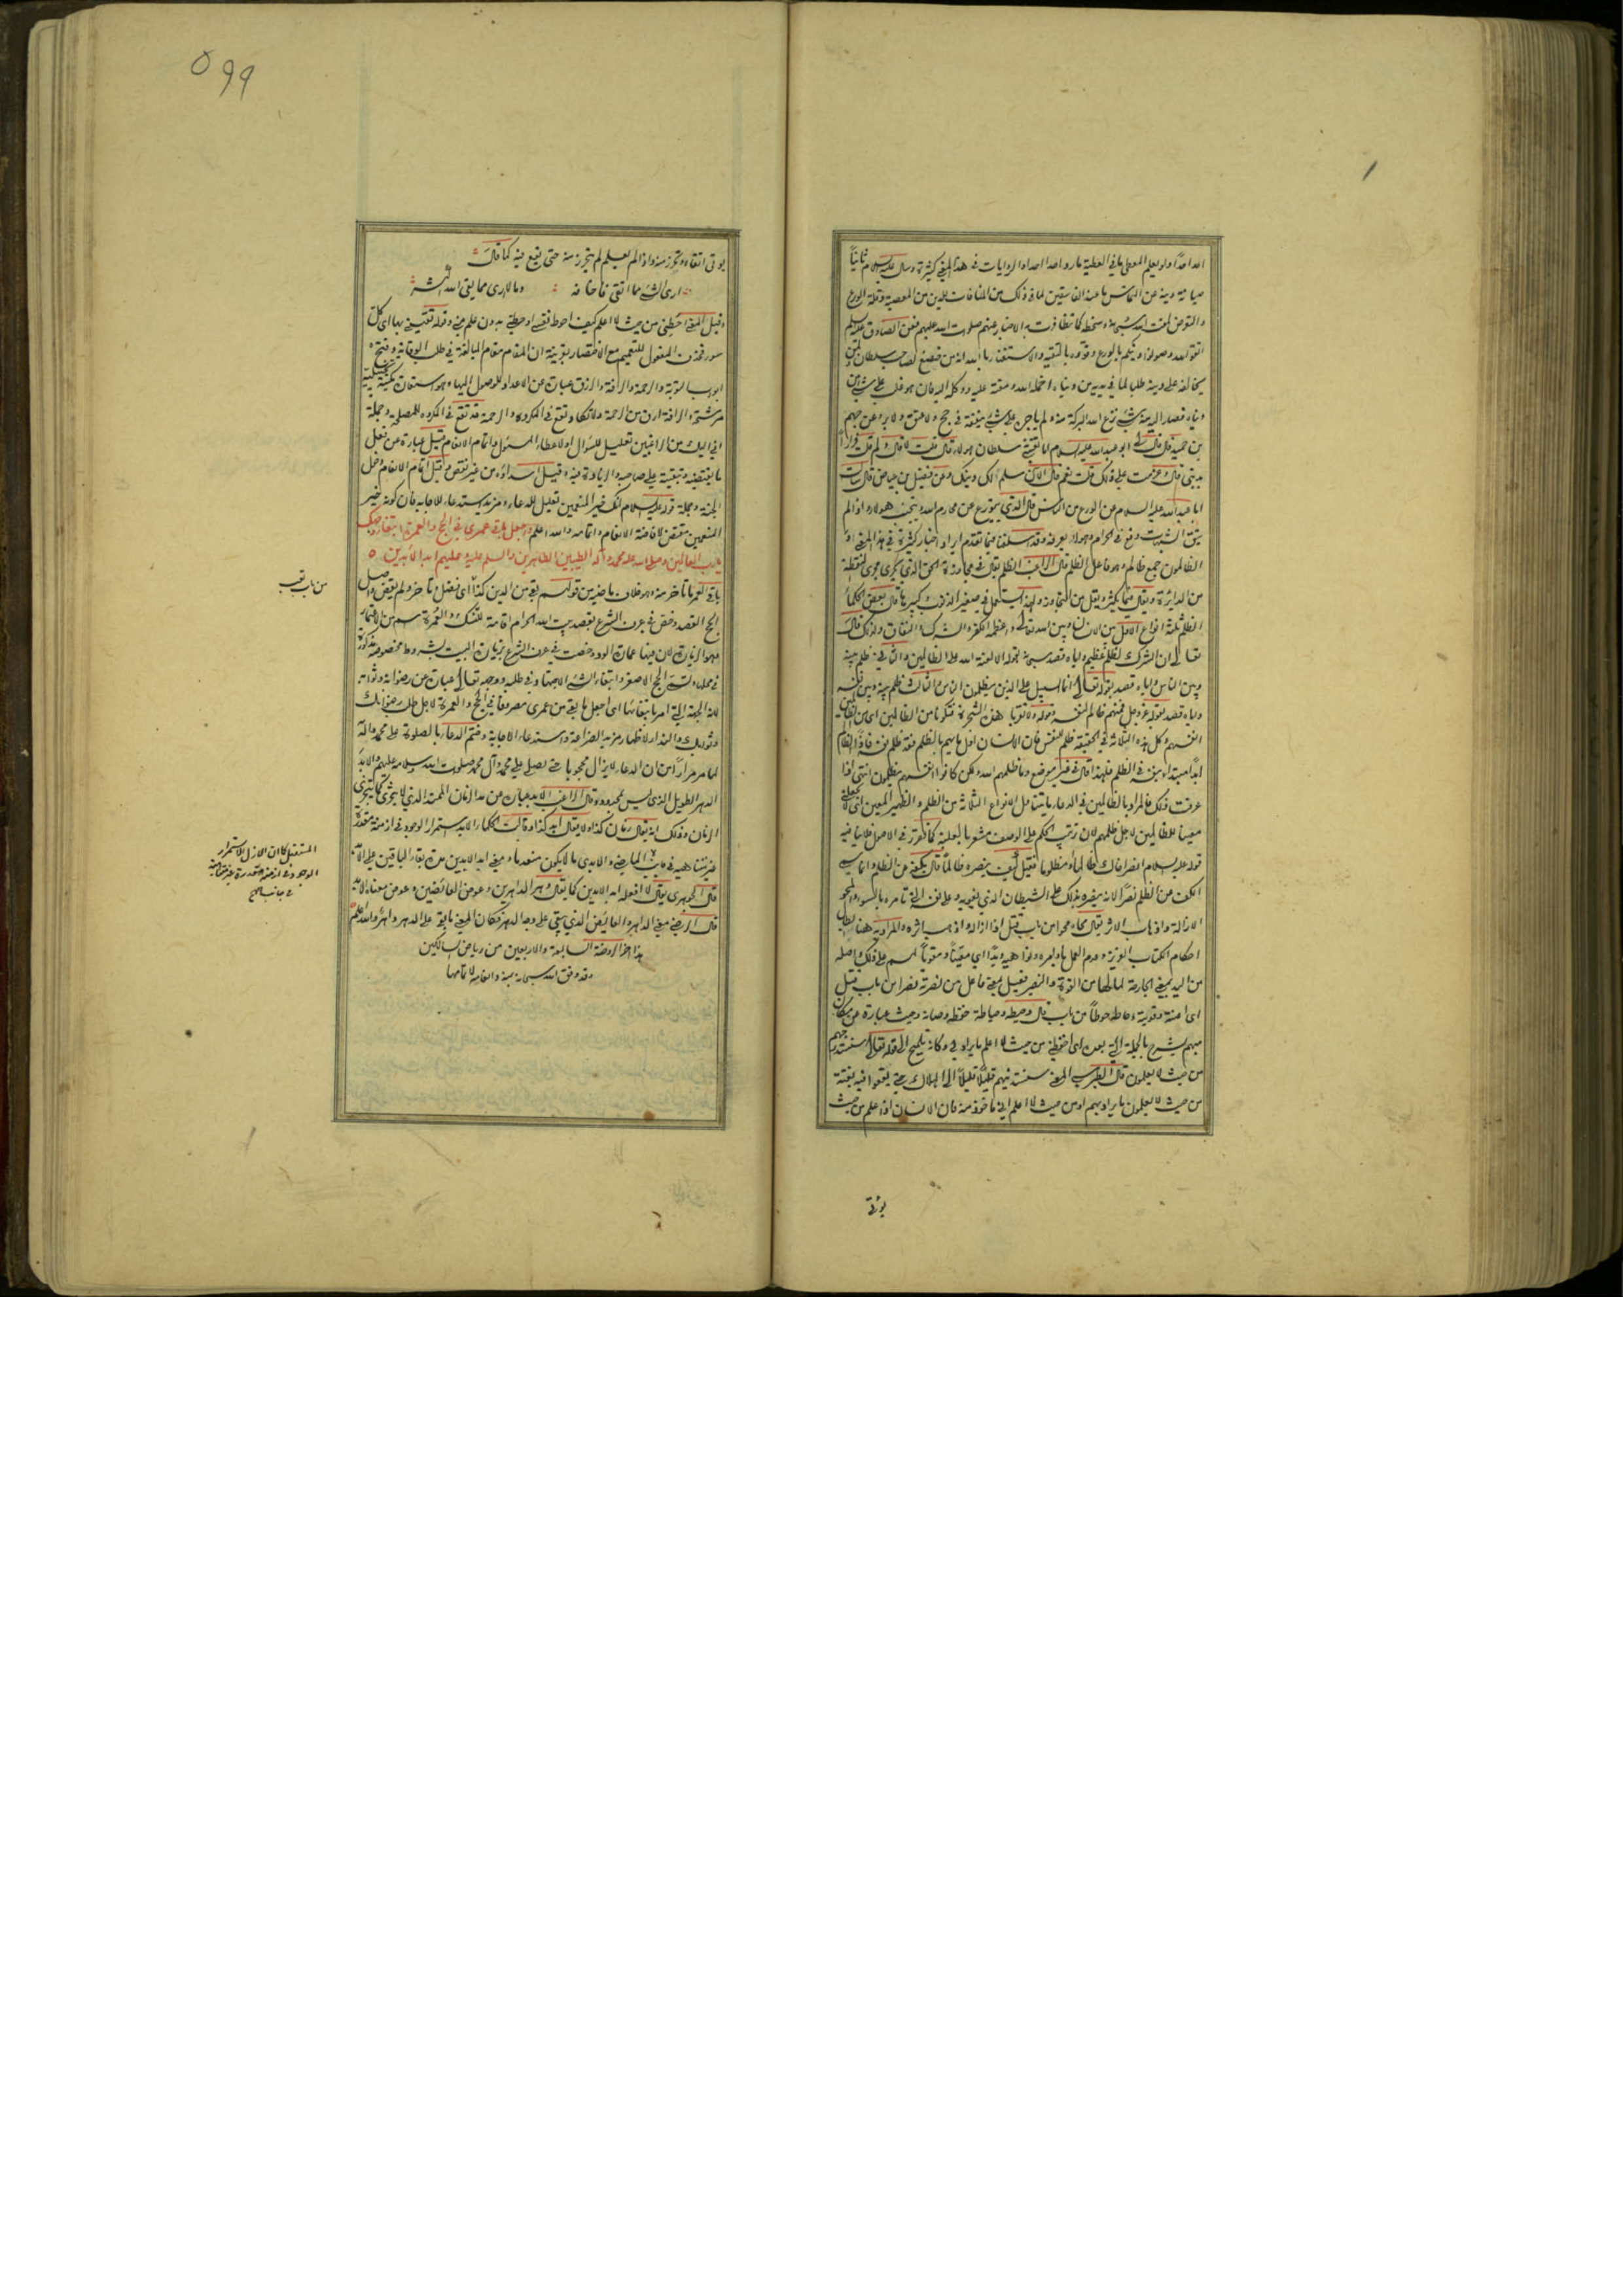 احدا احدا ولو يعلم المعطي ما في العطية ما رد احد احدا والروايات في هذا المعنى كثيرة وسال عليه السلام ثانيا
صيانة دينه عن التماس ما عند الفاسقين لما في ذلك من المنافات للدين من المعصية وقلة الورع
والتعرض لمقت الله سبحانه وسخطه كما تظافرت به الاخبار عنهم صلوات الله عليهم فعن الصادق عليه السلم
اتقوا الله وصونوا دينكم بالورع وقووه بالتقية والاستغناء بالله انه من خضع لصاحب سلطان ولمن
يخالفه على دينه طلبا لما في يديه من دنياه اخمله الله ومقته عليه ووكله اليه فان هو غلب على شيء من
دنياه فصار اليه منه شيء نزع الله البركة منه ولم ياجره على شيء ينفقه في حج ولا عتق ولا بر وعن جهم
بن حميد قال قال لي ابو عبد الله عليه السلام اما تغشى سلطان هولاء قال قلت لا قال ولم قلت فرارا
بديني قال وعزمت على ذلك قلت نعم قال الان سلم لك دينك وعن فضيل بن عياض قال سالت
ابا عبد الله عليه السلام عن الورع من الناس قال الذي يتورع عن محارم الله ويجتنب هولاء واذا لم
يتق الشبهات وقع في الحرام وهو لا يعرفه وقد اسلفنا فيما تقدم ايراد اخبار كثيرة في هذا المعنى
الظالمون جمع ظالم وهو فاعل الظلم قال الراغب الظلم يقال في مجاوزة الحق الذي يجري مجرى نقطة
من الدائرة ويقال فيما يكثر ويقل من التجاوز ولهذا يستعمل في صغير الذنوب وكبيرها قال بعض الحكماء
الظلم ثلثة انواع الاول بين الانسان وبين الله تعالى واعظمه الكفر والشرك والنفاق ولذلك قال
تعالى ان الشرك لظلم عظيم واياه قصد سبحانه بقوله الا لعنة الله على الظالمين والثاني ظلم بينه
وبين الناس واياه قصد بقوله تعالى انما السبيل على الذين يظلمون الناس والثالث ظلم بينه وبين نفسه
واياه قصد بقوله عز وجل فمنهم ظالم لنفسه وقوله ولا تقربا هذه الشجرة فتكونا من الظالمين اي من الظالمين
انفسهم وكل هذه الثلاثة في الحقيقة ظلم للنفس فان الانسان اول ما يهم بالظلم فقد ظلم نفسه فاذا الظالم
ابدا مبتدئ بنفسه في الظلم فلهذا قال في غير موضع وما ظلمهم الله ولكن كانوا انفسهم يظلمون انتهى اذا
عرفت ذلك فالمراد بالظالمين في الدعاء ما يتناول الانواع الثلاثة من الظلم والظهير المعين اي لا تجعلني
معينا للظالمين لاجل ظلمهم لان ترتب الحكم على الوصف مشعر بالعلية كما تقرر في الاصول فلا ينافيه
قوله عليه السلام انصر اخاك ظالما او مظلوما فقيل كيف ينصره ظالما قال بكفه عن الظلم وانما سمي
الكف عن الظلم نصرا لانه ينصره بذلك على الشيطان الذي يغويه وعلى نفسه التي تامره بالسوء والمحو
الازالة واذهاب الاثر يقال محاه محوا من باب قتل اذا ازاله واذهب اثره والمراد به هنا ابطال
احكام الكتاب العزيز وعدم العمل باوامره ونواهيه ويدا اي معينا ومقويا لهم على ذلك واصله
من اليد بمعنى الجارحة لما لها من القوة والنصير فعيل بمعنى فاعل من نصرته نصرا من باب قتل
اي اعنته وقويته وحاطه حوطا من باب قال وحيطة وحياطة حفظه وصانه وحيث عبارة عن مكان
مبهم يشرح بالجملة التي بعده اي احفظني من حيث لا اعلم ما يراد بي وكانه تلميح الى قوله تعالى سنستدرجهم
من حيث لا يعلمون قال الطبرسي المعنى سنستدنيهم قليلا قليلا الى الهلاك حتى يقعوا فيه بغتة
من حيث لا يعلمون ما يراد بهم او من حيث لا اعلم اني ماخوذ منه فان الانسان اذا علم من حيث
يؤتى
يؤتى اتقاه وتحرز منه واذا لم يعلم لم يتحرز منه حتى يقع فيه كما قال
ارى الشيء مما اتقي فاخافه وما لا ارى مما يقي الله اكثر
وقيل المعنى احطني من حيث لا اعلم كيف احوط نفسي او حطني بدون علم مني وقوله تقيني بها اي كل
سوء فحذف المفعول للتعميم مع الاختصار بقرينة ان المقام مقام المبالغة في طلب الوقاية وفتح
ابواب التوبة والرحمة والرافة والرزق عبارة عن الاعداد للوصول اليها وهو استعارة مكنية تخييلية
مرشحة والرافة ارق من الرحمة ولا تكاد تقع في الكراهة والرحمة قد تقع في الكراهة للمصلحة وجملة
اني اليك من الراغبين تعليل للسؤال او لاعطاء المسئول واتمام الانعام قيل عبارة عن فعل
ما يقتضيه وتبقيته على صاحبه والزيادة فيه وقيل اسداؤه من غير نقص وقيل اتمام الانعام دخول
الجنة وجملة قوله عليه السلام انك خير المنعمين تعليل للدعاء ومزيد استدعاء للاجابة فان كونه خير
المنعمين مقتض لافاضة الانعام واتمامه والله اعلم واجعل باقي عمري في الحج والعمرة ابتغاء وجهك
يا رب العالمين وصلى الله على محمد واله الطيبين الطاهرين والسلم عليه وعليهم ابد الابدين
باقي العمر ما تاخر منه وهو خلاف ماضيه من قولهم بقي من الدين كذا اي فضل وتاخر ولم يقض واصل
الحج القصد وخص في عرف الشرع بقصد بيت الله الحرام اقامة للنسك والعمرة اسم من الاعتمار
وهو الزيارة لان فيها عمارة الود وخصت في عرف الشرع بزيارة البيت بشروط مخصوصة مذكورة
في محلها وتسمى الحج الاصغر وابتغاء الشيء الاجتهاد في طلبه ووجهه تعالى عبارة عن رضوانه وثوابه
لانه الجهة التي امر بابتغائها اي اجعل ما بقي من عمري مصروفا في الحج والعمرة لاجل طلب رضوانك
وثوابك والنداء لاظهار مزيد الضراعة واستدعاء الاجابة وختم الدعاء بالصلوة على محمد واله
لما مر مرارا من ان الدعاء لا يزال محجوبا حتى يصلى على محمد وآل محمد صلوات الله وسلامه عليهم والابد
الدهر الطويل الذي ليس بمحدود وقال الراغب الابد عبارة عن مدة الزمان الممتد الذي لا يتجزى كما يتجزى
الزمان وذلك انه يقال زمان كذا ولا يقال ابد كذا وقالت الحكماء الابد استمرار الوجود في ازمنة مقدرة
غير متناهية في جانب الماضي والابدي ما لا يكون منعدما ومعنى ابد الابدين مدة بقاء الباقين على الابد
قال الجوهري يقال لا افعله ابد الابدين كما يقال دهر الداهرين وعوض العائضين وعوض معناه الابد
قال الرضي معنى الداهر والعائض الذي يبقى على وجه الدهر فكان المعنى ما بقي على الدهر داهر والله اعلم
هذا اخر الروضة السابعة والاربعين من رياض السالكين
وقد وفق الله سبحانه بمنه وانعامه لاتمامها
من باب تعب
المستقبل كما ان الازل استمرار
الوجود في ازمنة مقدرة غير متناهية
في جانب
٥٩٩